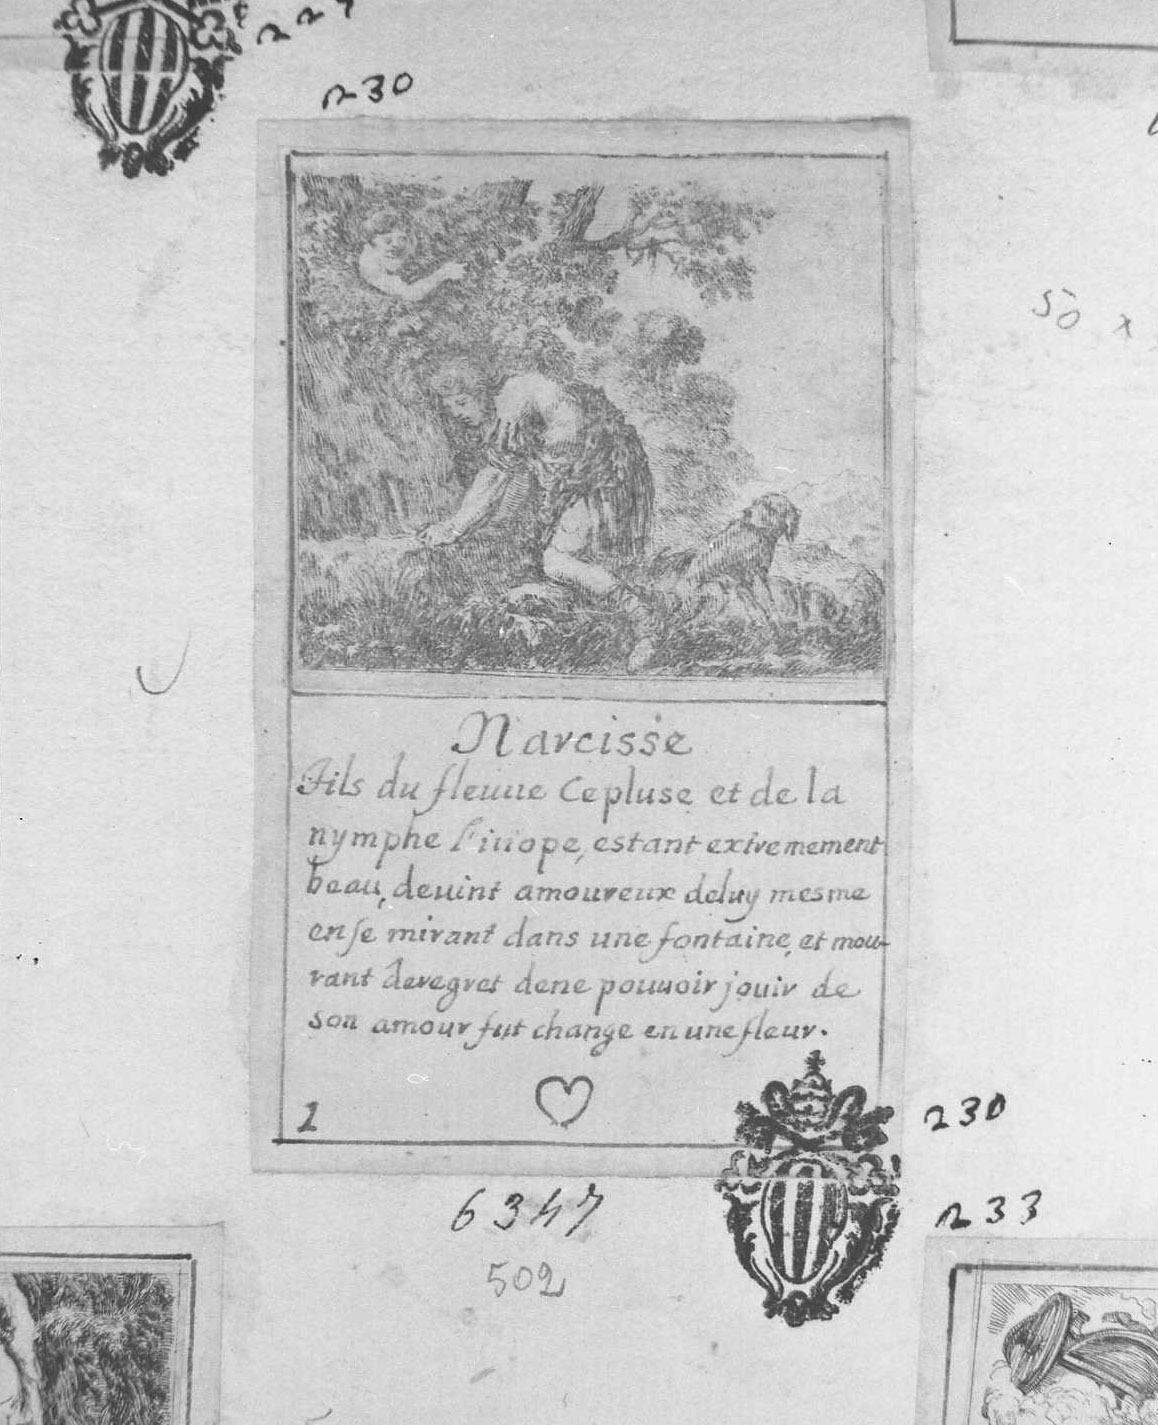 227
230
50 x
Narcisse
Fils du fleuue Cepluse et de la
nymphe Liriope, estant extremement
beau, deuint amoureux deluy mesme
en se mirant dans une fontaine, et mou-
rant deregret dene pouuoir jouir de
son amour fut change en une fleur.
1
230
6347
233
502